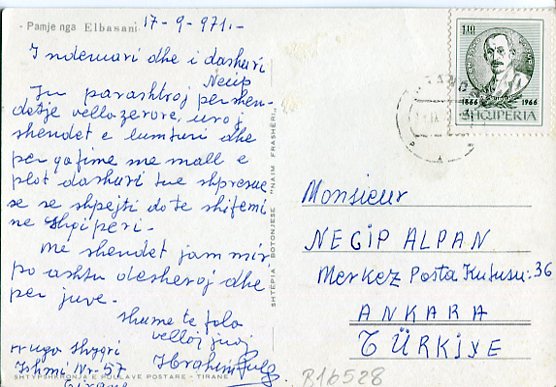 - Pamje nga Elbasani
17-9-971.-
I nderuari dhe i dashuri
Necip
Ju parashtroj pershen-
detje vellazerore, uroj
shendet e lumturi dhe
per qafime me mall e
plot dashuri tue shpresue
se se shpejti do te shifemi
ne Shqiperi.
Me shendet jam mir
po ashtu desheroj dhe
per juve.
shume te fala
velloj juaj
Ibrahim
rruga Shyqri
Ishmi Nr-57
Tirane
SHTËPIA BOTONJESE "NAIM FRASHËRI"
SHTYPSHKRONJA E POLLAVE POSTARE - TIRANË
1,10
1866 1966
SHQIPERIA
Monsieur
NECIP ALPAN
Merkez Posta Kutusu: 36
ANKARA
TÜRKİYE
B16528